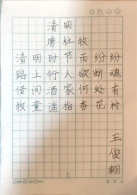 清明
唐杜牧
清明时节雨纷纷
路上行人欲断魂
借问酒家何处有
牧童遥指杏花村
王俊翔